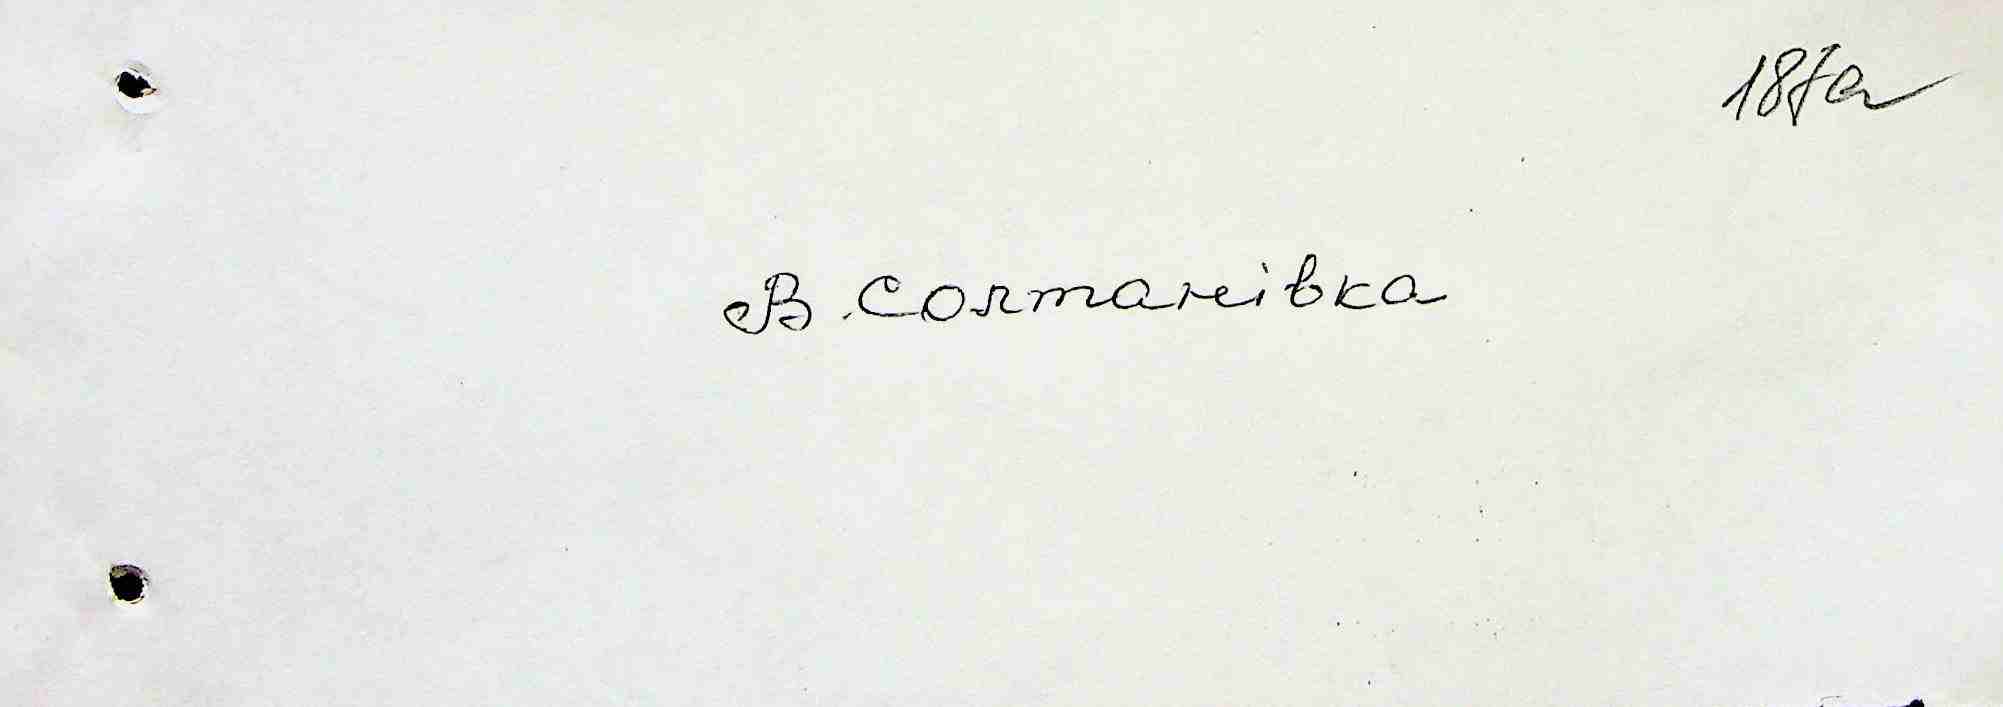 187а
В. Солтанівка